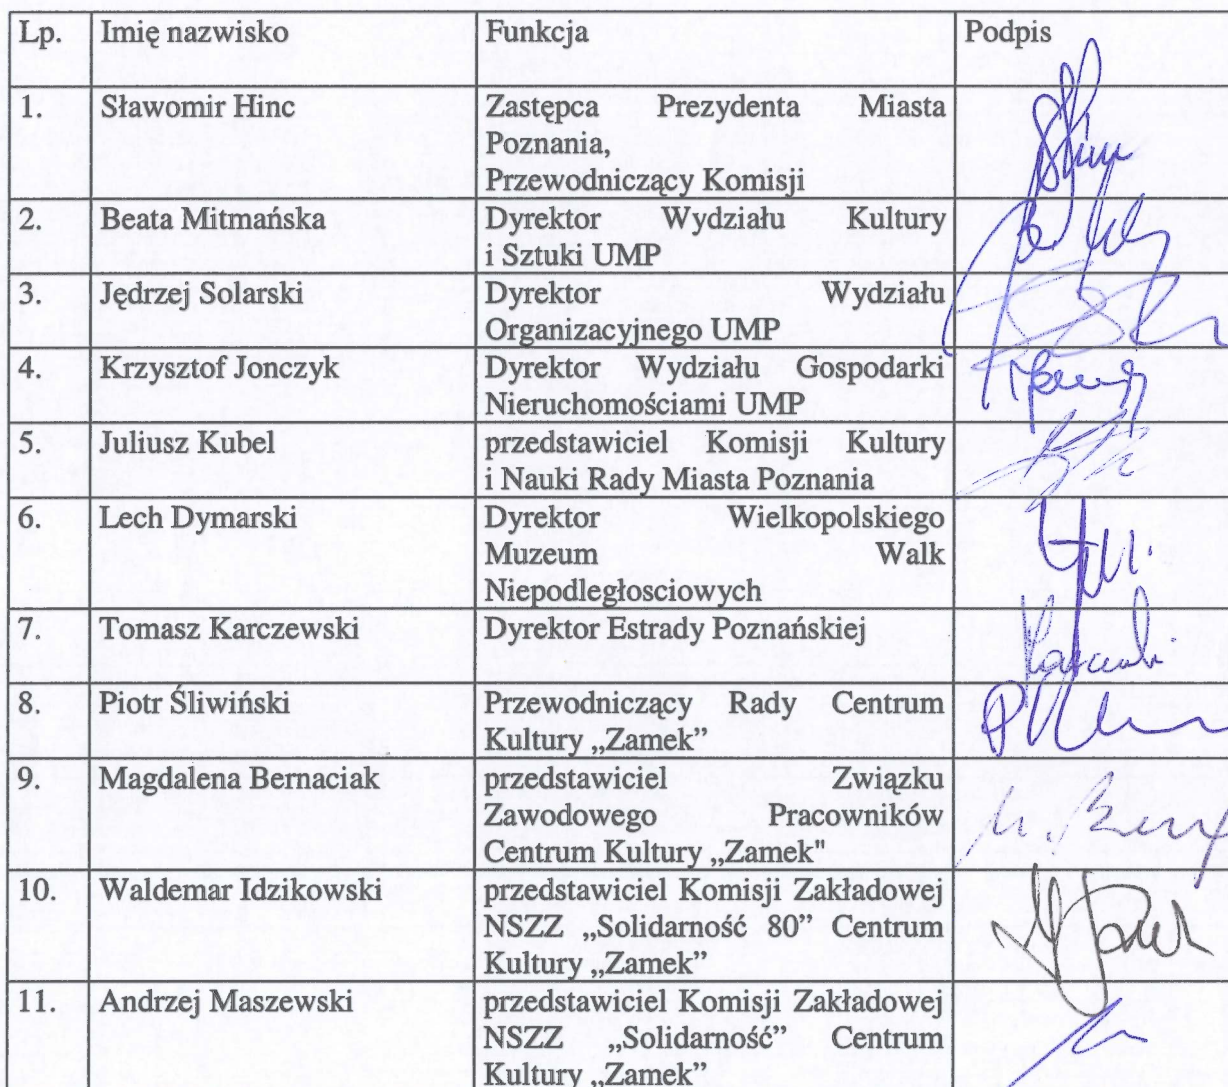 Lp. Imię nazwisko Funkcja Podpis
1. Sławomir Hinc Zastępca Prezydenta Miasta
Poznania,
Przewodniczący Komisji
2. Beata Mitmańska Dyrektor Wydziału Kultury
i Sztuki UMP
3. Jędrzej Solarski Dyrektor Wydziału
Organizacyjnego UMP
4. Krzysztof Jonczyk Dyrektor Wydziału Gospodarki
Nieruchomościami UMP
5. Juliusz Kubel przedstawiciel Komisji Kultury
i Nauki Rady Miasta Poznania
6. Lech Dymarski Dyrektor Wielkopolskiego
Muzeum Walk
Niepodległosciowych
7. Tomasz Karczewski Dyrektor Estrady Poznańskiej
8. Piotr Śliwiński Przewodniczący Rady Centrum
Kultury „Zamek”
9. Magdalena Bernaciak przedstawiciel Związku
Zawodowego Pracowników
Centrum Kultury „Zamek"
10. Waldemar Idzikowski przedstawiciel Komisji Zakładowej
NSZZ „Solidarność 80” Centrum
Kultury „Zamek”
11. Andrzej Maszewski przedstawiciel Komisji Zakładowej
NSZZ „Solidarność” Centrum
Kultury „Zamek”